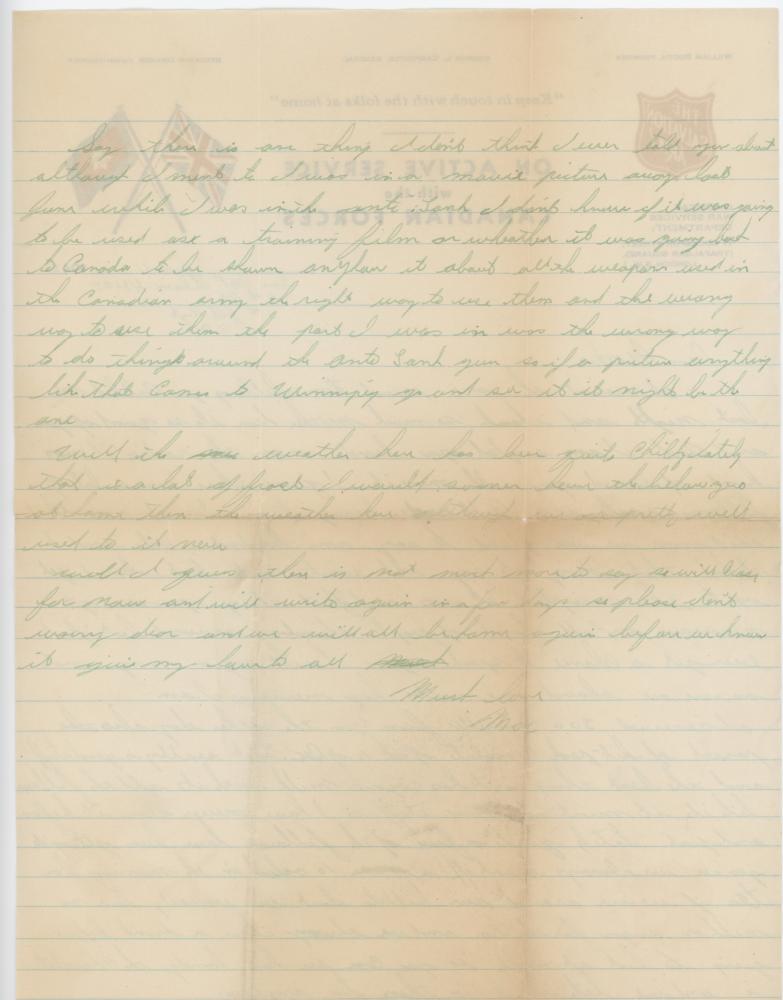 Say there is one thing I don't think I ever told you about
although I ment to I was in a movie picture away last
June while I was in the anti Tank I didn't know if it was going
to be used as a training film or wheather it was going back
to Canada to be shown anyhow it about all the weapons used in
the Canadian army the right way to use them and the wrong
way to use them the part I was in was the wrong way
to do things around the anti Tank gun so if a picture anything
like that comes to Winnipeg go and see it it might be the
one
Well the weather here has been quite chilly lately
that is a lot of frost I would sooner have the below zero
at home then the weather here although we are pretty well
used to it now
well I guess there is not much more to say so will close
for now and will write again in a few days so please don't
worry dear and we will all be home again before we know
it give my love to all
Much love
Mac